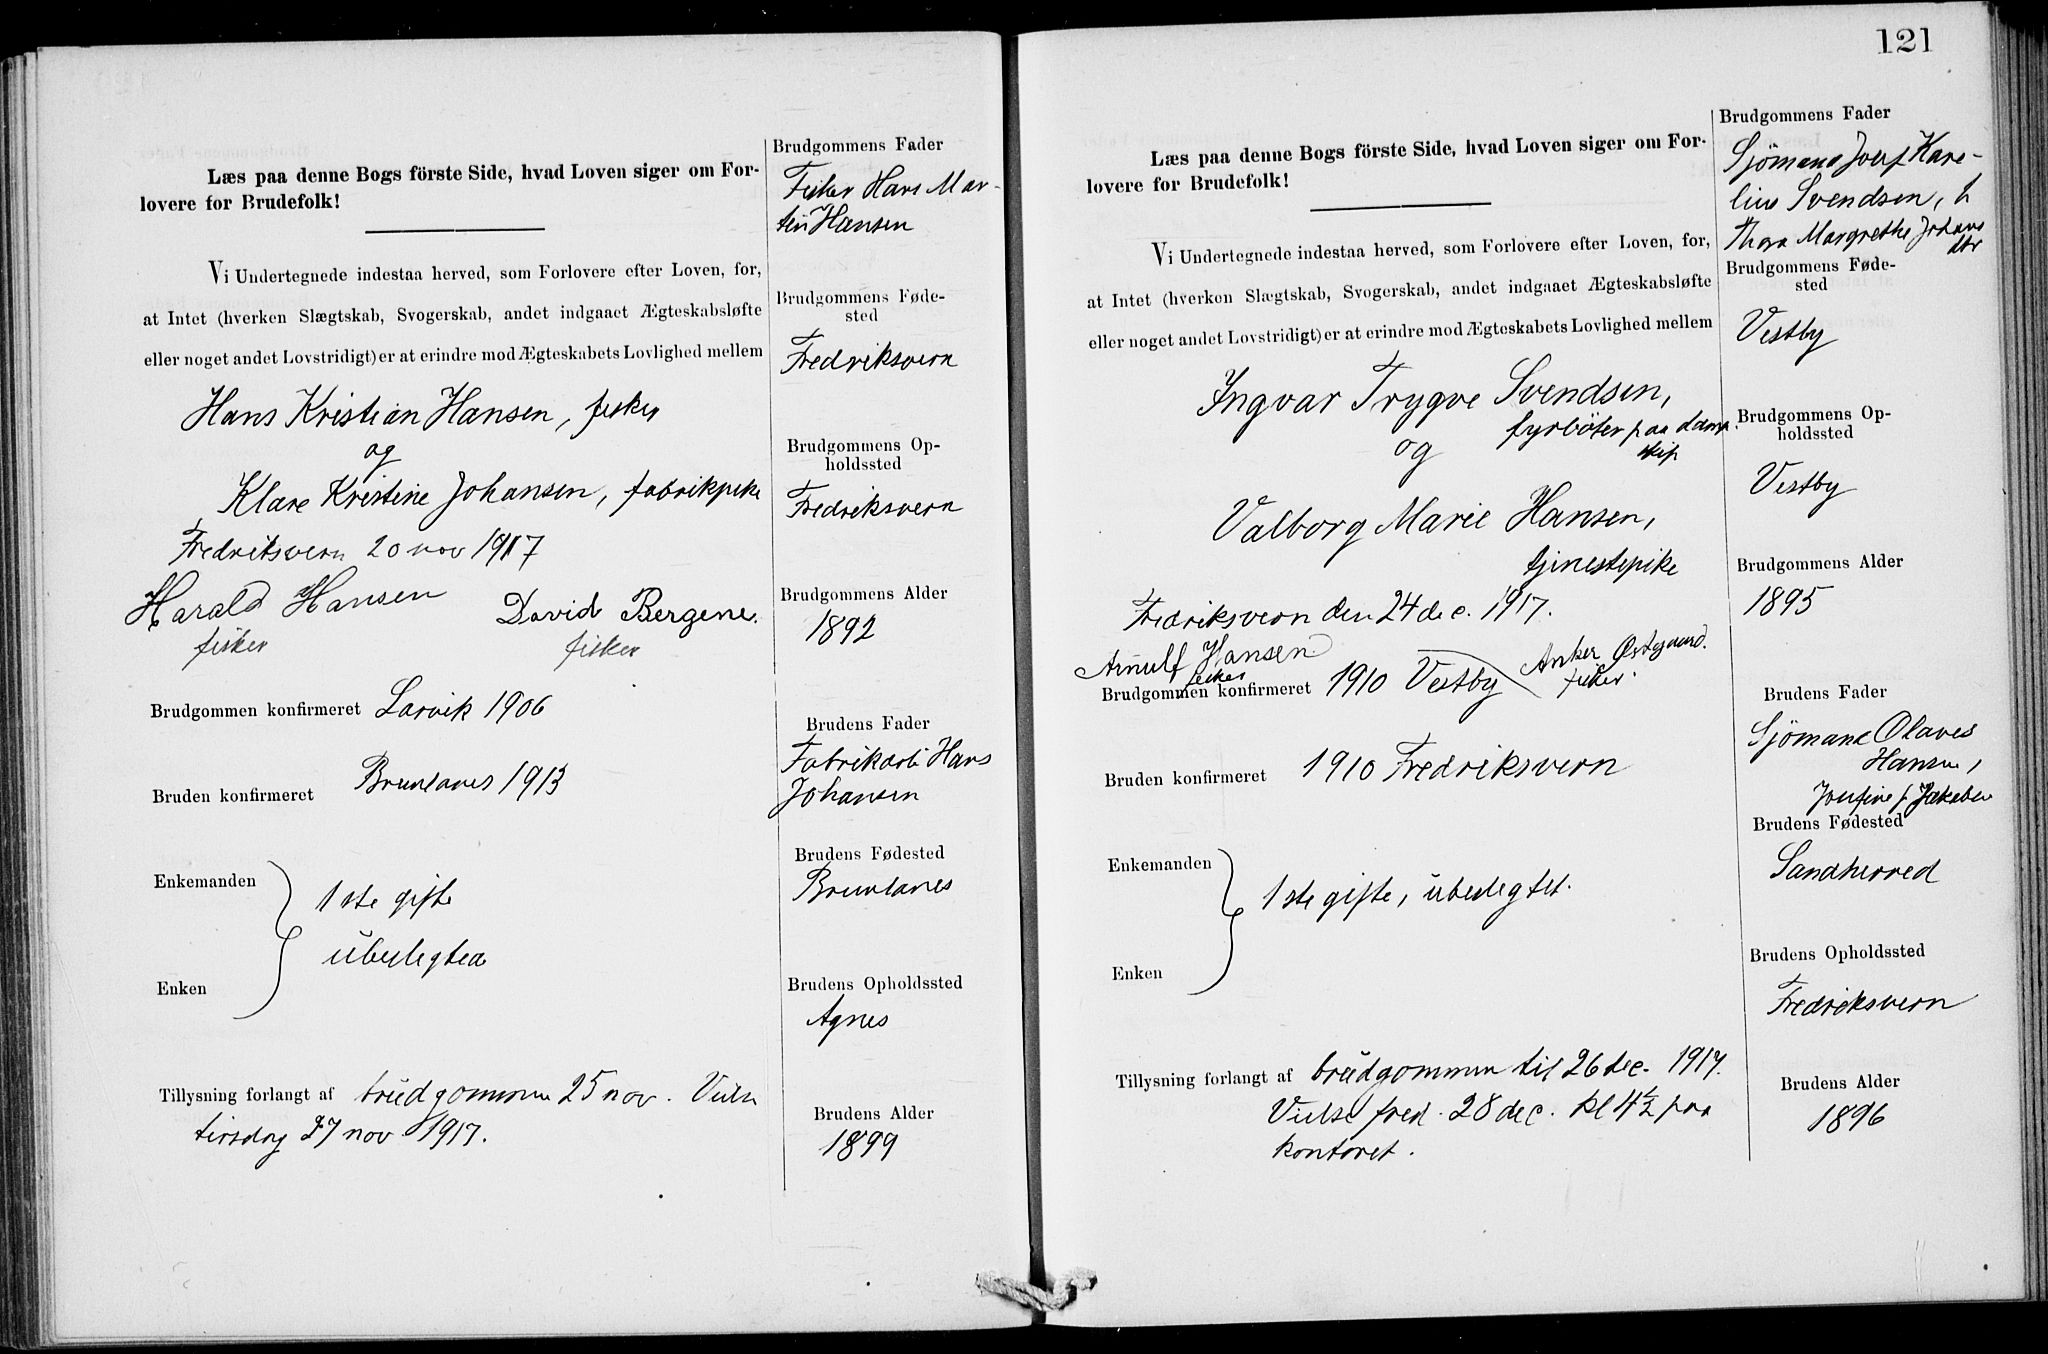 Læs paa denne Bogs förste Side, hvad Loven siger om For-
lovere for Brudefolk!
Vi Undertegnede indestaa herved, som Forlovere efter Loven, for,
at Intet (hverken Slægtskab, Svogerskab, andet indgaaet Ægteskabsløfte
eller noget andet Lovstridigt) er at erindre mod Ægteskabets Lovlighed mellem
Hans Kristian Hansen, fisker
og
Klara Kristine Johansen, fabrikpike
Fredriksvern 20 nov 1917
Harald Hansen David Bergene.
fisker fisker
Brudgommen konfirmeret Larvik 1906
Bruden konfirmeret Brunlanes 1913
Enkemanden
1ste gifte
ubeslegtede
Enken
Tillysning forlangt af brudgommen 25 nov. Vielse
tirsdag 27 nov 1917.
Brudgommens Fader
Fisker Hans Mar-
tin Hansen
Brudgommens Føde-
sted
Fredriksvern
Brudgommens Op-
holdssted
Fredriksvern
Brudgommens Alder
1892
Brudens Fader
Fabrikarb. Hans
Johansen
Brudens Fødested
Brunlanes
Brudens Opholdssted
Agnes
Brudens Alder
1899
121
Læs paa denne Bogs förste Side, hvad Loven siger om For-
lovere for Brudefolk!
Vi Undertegnede indestaa herved, som Forlovere efter Loven, for,
at Intet (hverken Slægtskab, Svogerskab, andet indgaaet Ægteskabsløfte
eller noget andet Lovstridigt) er at erindre mod Ægteskabets Lovlighed mellem
Ingvar Trygve Svendsen,
fyrbøter paa damp-
skip
og
Valborg Marie Hansen,
tjenestepike
Fredriksvern den 24 dec. 1917.
Arnulf Hansen Anker Østgaard.
fisker fisker
Brudgommen konfirmeret 1910 Vestby
Bruden konfirmeret 1910 Fredriksvern
Enkemanden
1ste gifte, ubeslegtet.
Enken
Tillysning forlangt af brudgommen til 26 dec. 1917.
Vielse fred. 28 dec. kl 4½ paa
kontoret.
Brudgommens Fader
Sjømand Josef Kare-
lius Svendsen,
Thora Margrethe Johans
dtr
Brudgommens Føde-
sted
Vestby
Brudgommens Op-
holdssted
Vestby
Brudgommens Alder
1895
Brudens Fader
Sjømand Olaves
Hansen,
Josefine f. Jakobsen
Brudens Fødested
Sandherred
Brudens Opholdssted
Fredriksvern
Brudens Alder
1896